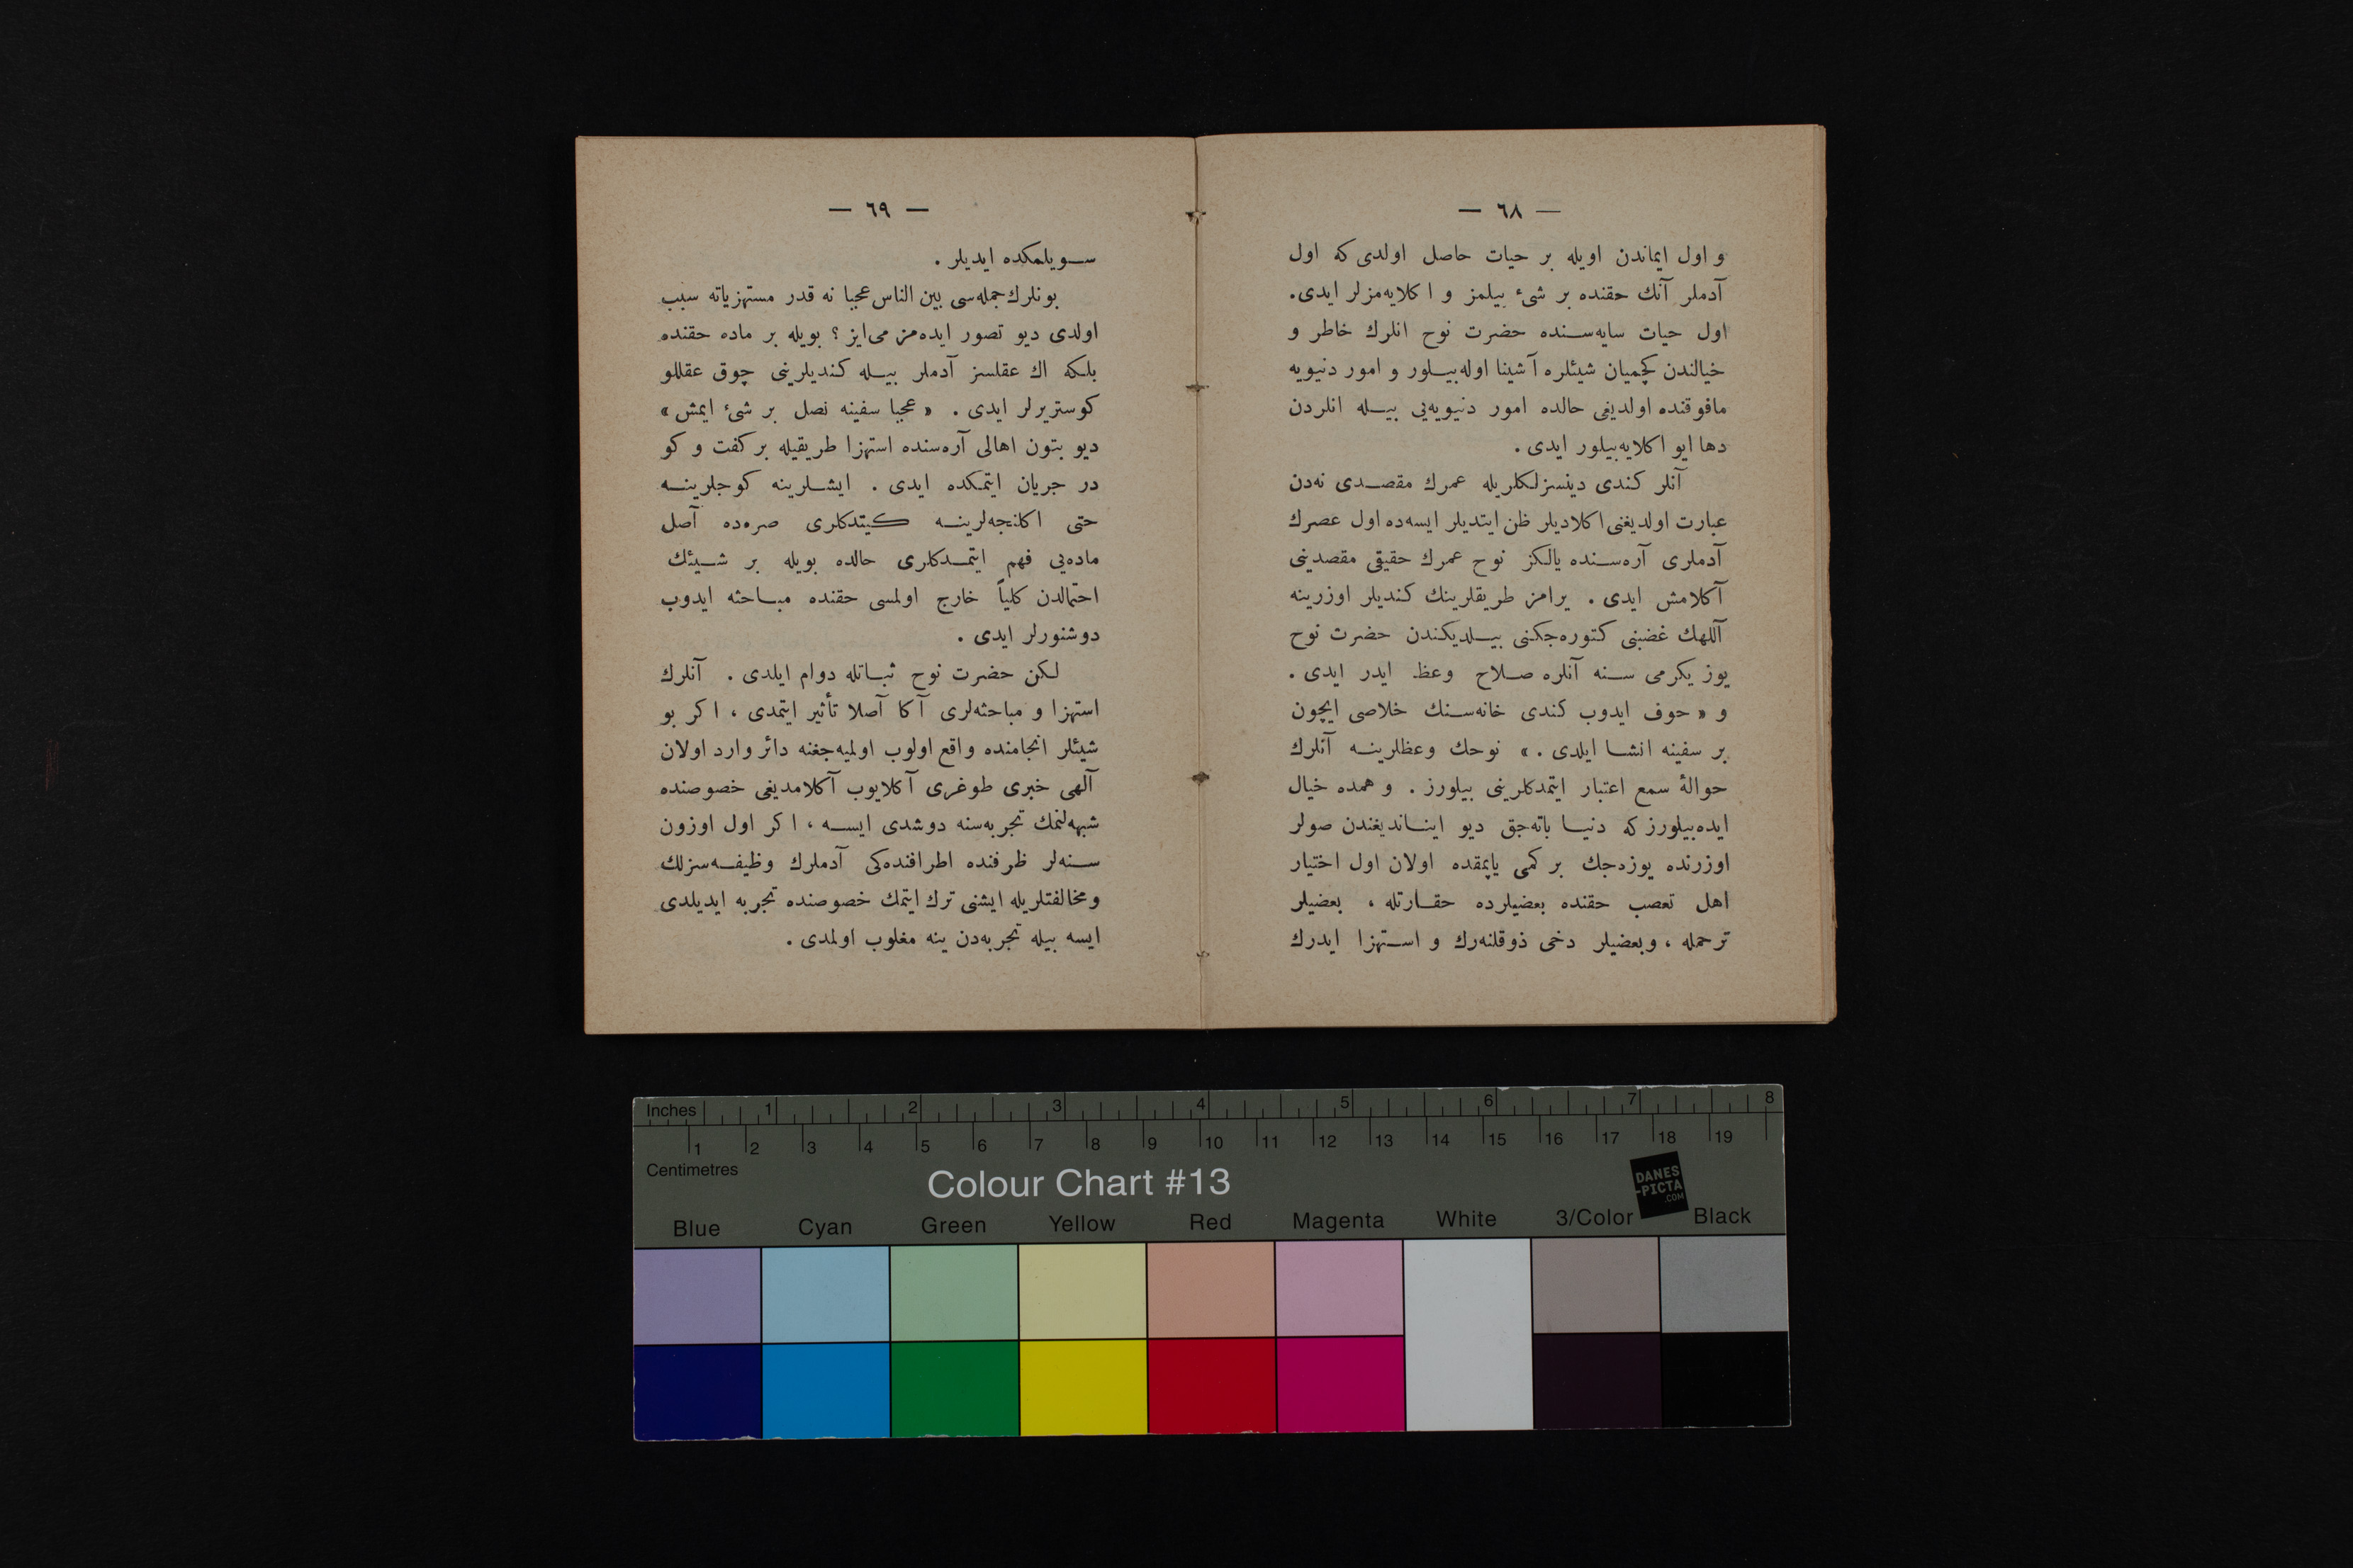 — ٦٨ —
و اول ایماندن اویله بر حیات حاصل اولدی که اول
آدملر آنك حقنده بر شیٔ بیلمز و اکلایه‌مزلر ایدی.
اول حیات سایه‌سنده حضرت نوح انلرك خاطر و
خیالندن کچمیان شیئلره آشینا اوله‌بیلور و امور دنیویه
مافوقنده اولدیغی حالده امور دنیویه‌یی بیله انلردن
دها ایو اکلایه‌بیلور ایدی.
آنلر کندی دینسزلکلریله عمرك مقصدی نه‌دن
عبارت اولدیغنی اکلادیلر ظن ایتدیلر ایسه‌ده اول عصرك
آدملری آره‌سنده یالکز نوح عمرك حقیقی مقصدینی
آکلامش ایدی. یرامز طریقلرینك کندیلر اوزرینه
آللهك غضبنی کتوره‌جکنی بیلدیکندن حضرت نوح
یوز یکرمی سنه آنلره صلاح وعظ ایدر ایدی.
و «خوف ایدوب کندی خانه‌سنك خلاصی ایچون
بر سفینه انشا ایلدی.» نوحك وعظلرینه آنلرك
حوالهٔ سمع اعتبار ایتمدکلرینی بیلورز. و همده خیال
ایده‌بیلورز که دنیا باته‌جق دیو ایناندیغندن صولر
اوزرنده یوزه‌جك بر کمی یاپمقده اولان اول اختیار
اهل تعصب حقنده بعضیلرده حقارتله، بعضیلر
ترحمله، وبعضیلر دخی ذوقلنه‌رك و استهزا ایدرك
— ٦٩ —
سویلمکده ایدیلر.
بونلرك جمله‌سی بین الناس عجبا نه قدر مستهزیاته سبب
اولدی دیو تصور ایده‌مز می‌ایز؟ بویله بر ماده حقنده
بلکه اك عقلسز آدملر بیله کندیلرینی چوق عقللو
کوستریرلر ایدی. «عجبا سفینه نصل بر شیٔ ایمش»
دیو بتون اهالی آره‌سنده استهزا طریقیله بر کفت و کو
در جریان ایتمکده ایدی. ایشلرینه کوجلرینه
حتی اکلنجه‌لرینه کیتدکلری صره‌ده آصل
ماده‌یی فهم ایتمدکلری حالده بویله بر شیئك
احتمالدن کلیاً خارج اولمسی حقنده مباحثه ایدوب
دوشنورلر ایدی.
لکن حضرت نوح ثباتله دوام ایلدی. آنلرك
استهزا و مباحثه‌لری آکا آصلا تأثیر ایتمدی، اکر بو
شیئلر انجامنده واقع اولوب اولمیه‌جغنه دائر وارد اولان
آلهی خبری طوغری آکلایوب آکلامدیغی خصوصنده
شبهه‌لنمك تجربه‌سنه دوشدی ایسه، اکر اول اوزون
سنه‌لر ظرفنده اطرافنده‌کی آدملرك وظیفه‌سزلك
ومخالفتلریله ایشنی ترك ایتمك خصوصنده تجربه ایدیلدی
ایسه بیله تجربه‌دن ینه مغلوب اولمدی.
Inches 1 2 3 4 5 6 7 8
1 2 3 4 5 6 7 8 9 10 11 12 13 14 15 16 17 18 19
Centimetres
Colour Chart #13
DANES
-PICTA
.COM
Blue Cyan Green Yellow Red Magenta White 3/Color Black